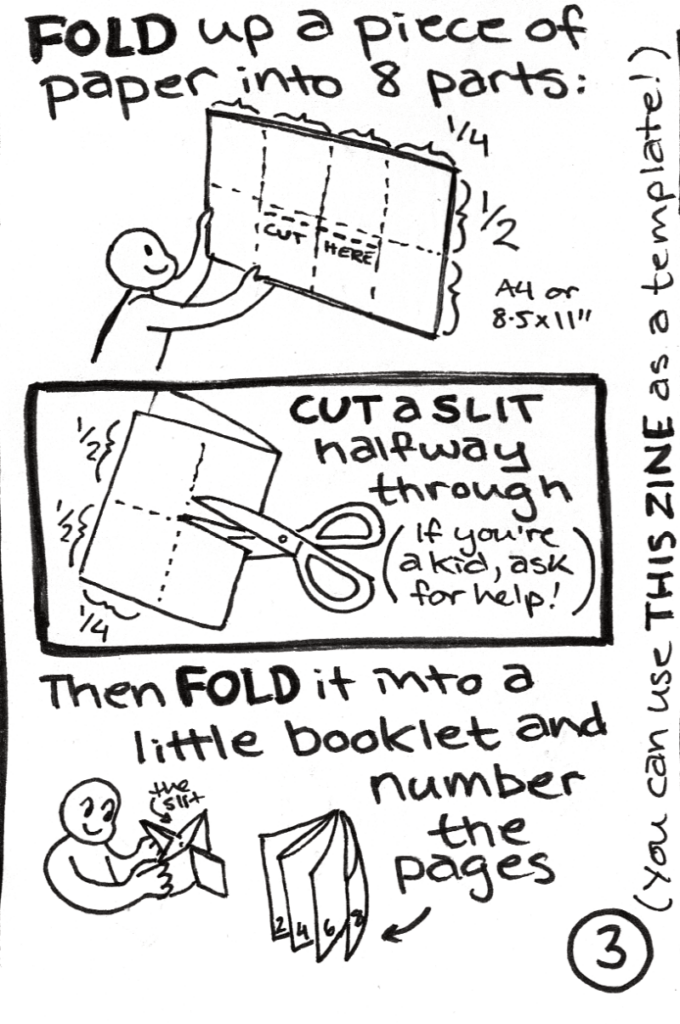 FOLD up a piece of
paper into 8 parts:
1/4
1/2
CUT HERE
A4 or
8.5x11"
CUT a SLIT
halfway
through
(If you're
a kid, ask
for help!)
1/2
1/2
1/4
Then FOLD it into a
little booklet and
number
the
pages
the
slit
2 4 6 8
3
(You can use THIS ZINE as a template!)